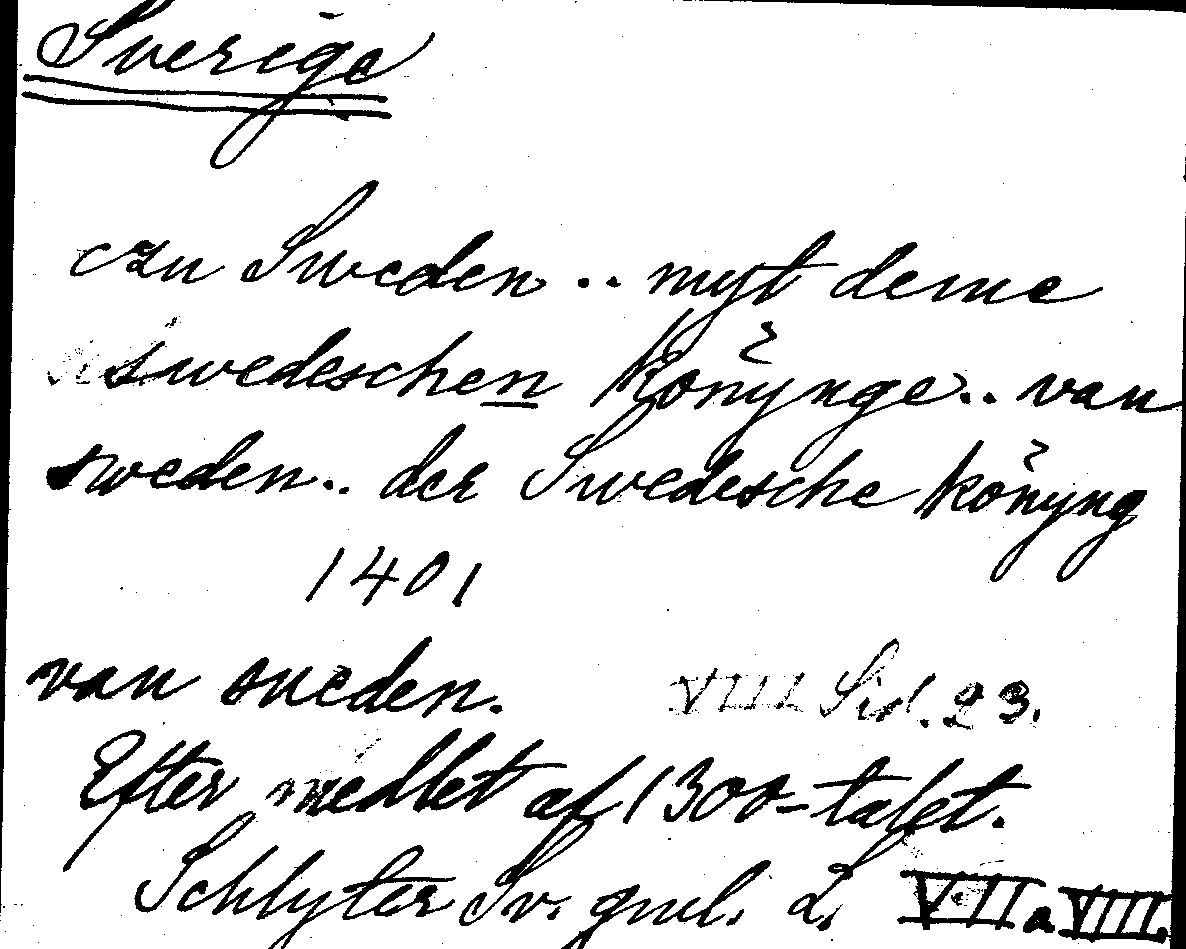 Sverige
czu Sweden.. myt deme
swedeschen könynge.. van
sweden.. der Swedesche könyng
1401
van sueden. VIII Sid. 23.
Efter medlet af 1300-talet.
Schlyter Sv. gml. L. VII a VIII.